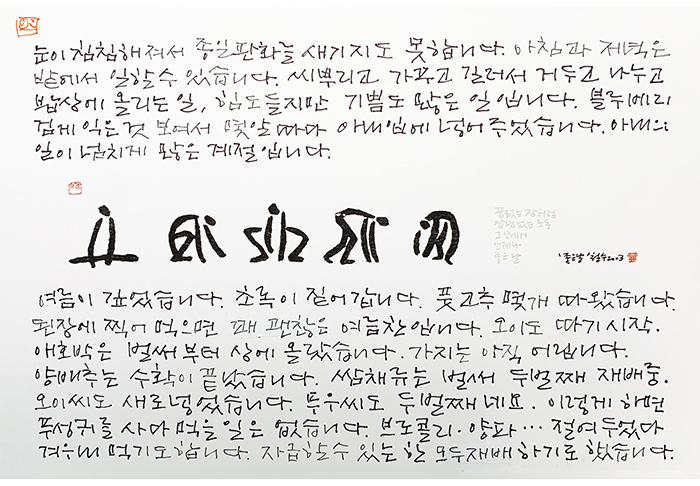 눈이 침침해져서 종일 판화를 새기지도 못합니다. 아침과 저녁은
밭에서 일할 수 있습니다. 씨뿌리고 가꾸고 길러서 거두고 나누고
밥상에 올리는 일, 힘도 들지만 기쁨도 많은 일입니다. 블루베리
검게 익은 것 보여서 몇 알 따다 아내 입에 넣어 주었습니다. 아내의
일이 넘치게 많은 계절입니다.
좋은 날
'좋은날' 철수2003
여름이 깊었습니다. 초록이 짙어 갑니다. 풋고추 몇개 따 왔습니다.
된장에 찍어 먹으면 꽤 괜찮은 여름찬입니다. 오이도 따기 시작.
애호박은 벌써부터 상에 올랐습니다. 가지는 아직 어립니다.
양배추는 수확이 끝났습니다. 쌈채류는 벌써 두벌째 재배중.
오이씨도 새로 넣었습니다. 무우씨도 두벌째네요. 이렇게 하면
푸성귀를 사다 먹을 일은 없습니다. 브로콜리·양파… 절여두었다
겨우내 먹기도 합니다. 자급할 수 있는 한 모두 재배하기로 했습니다.